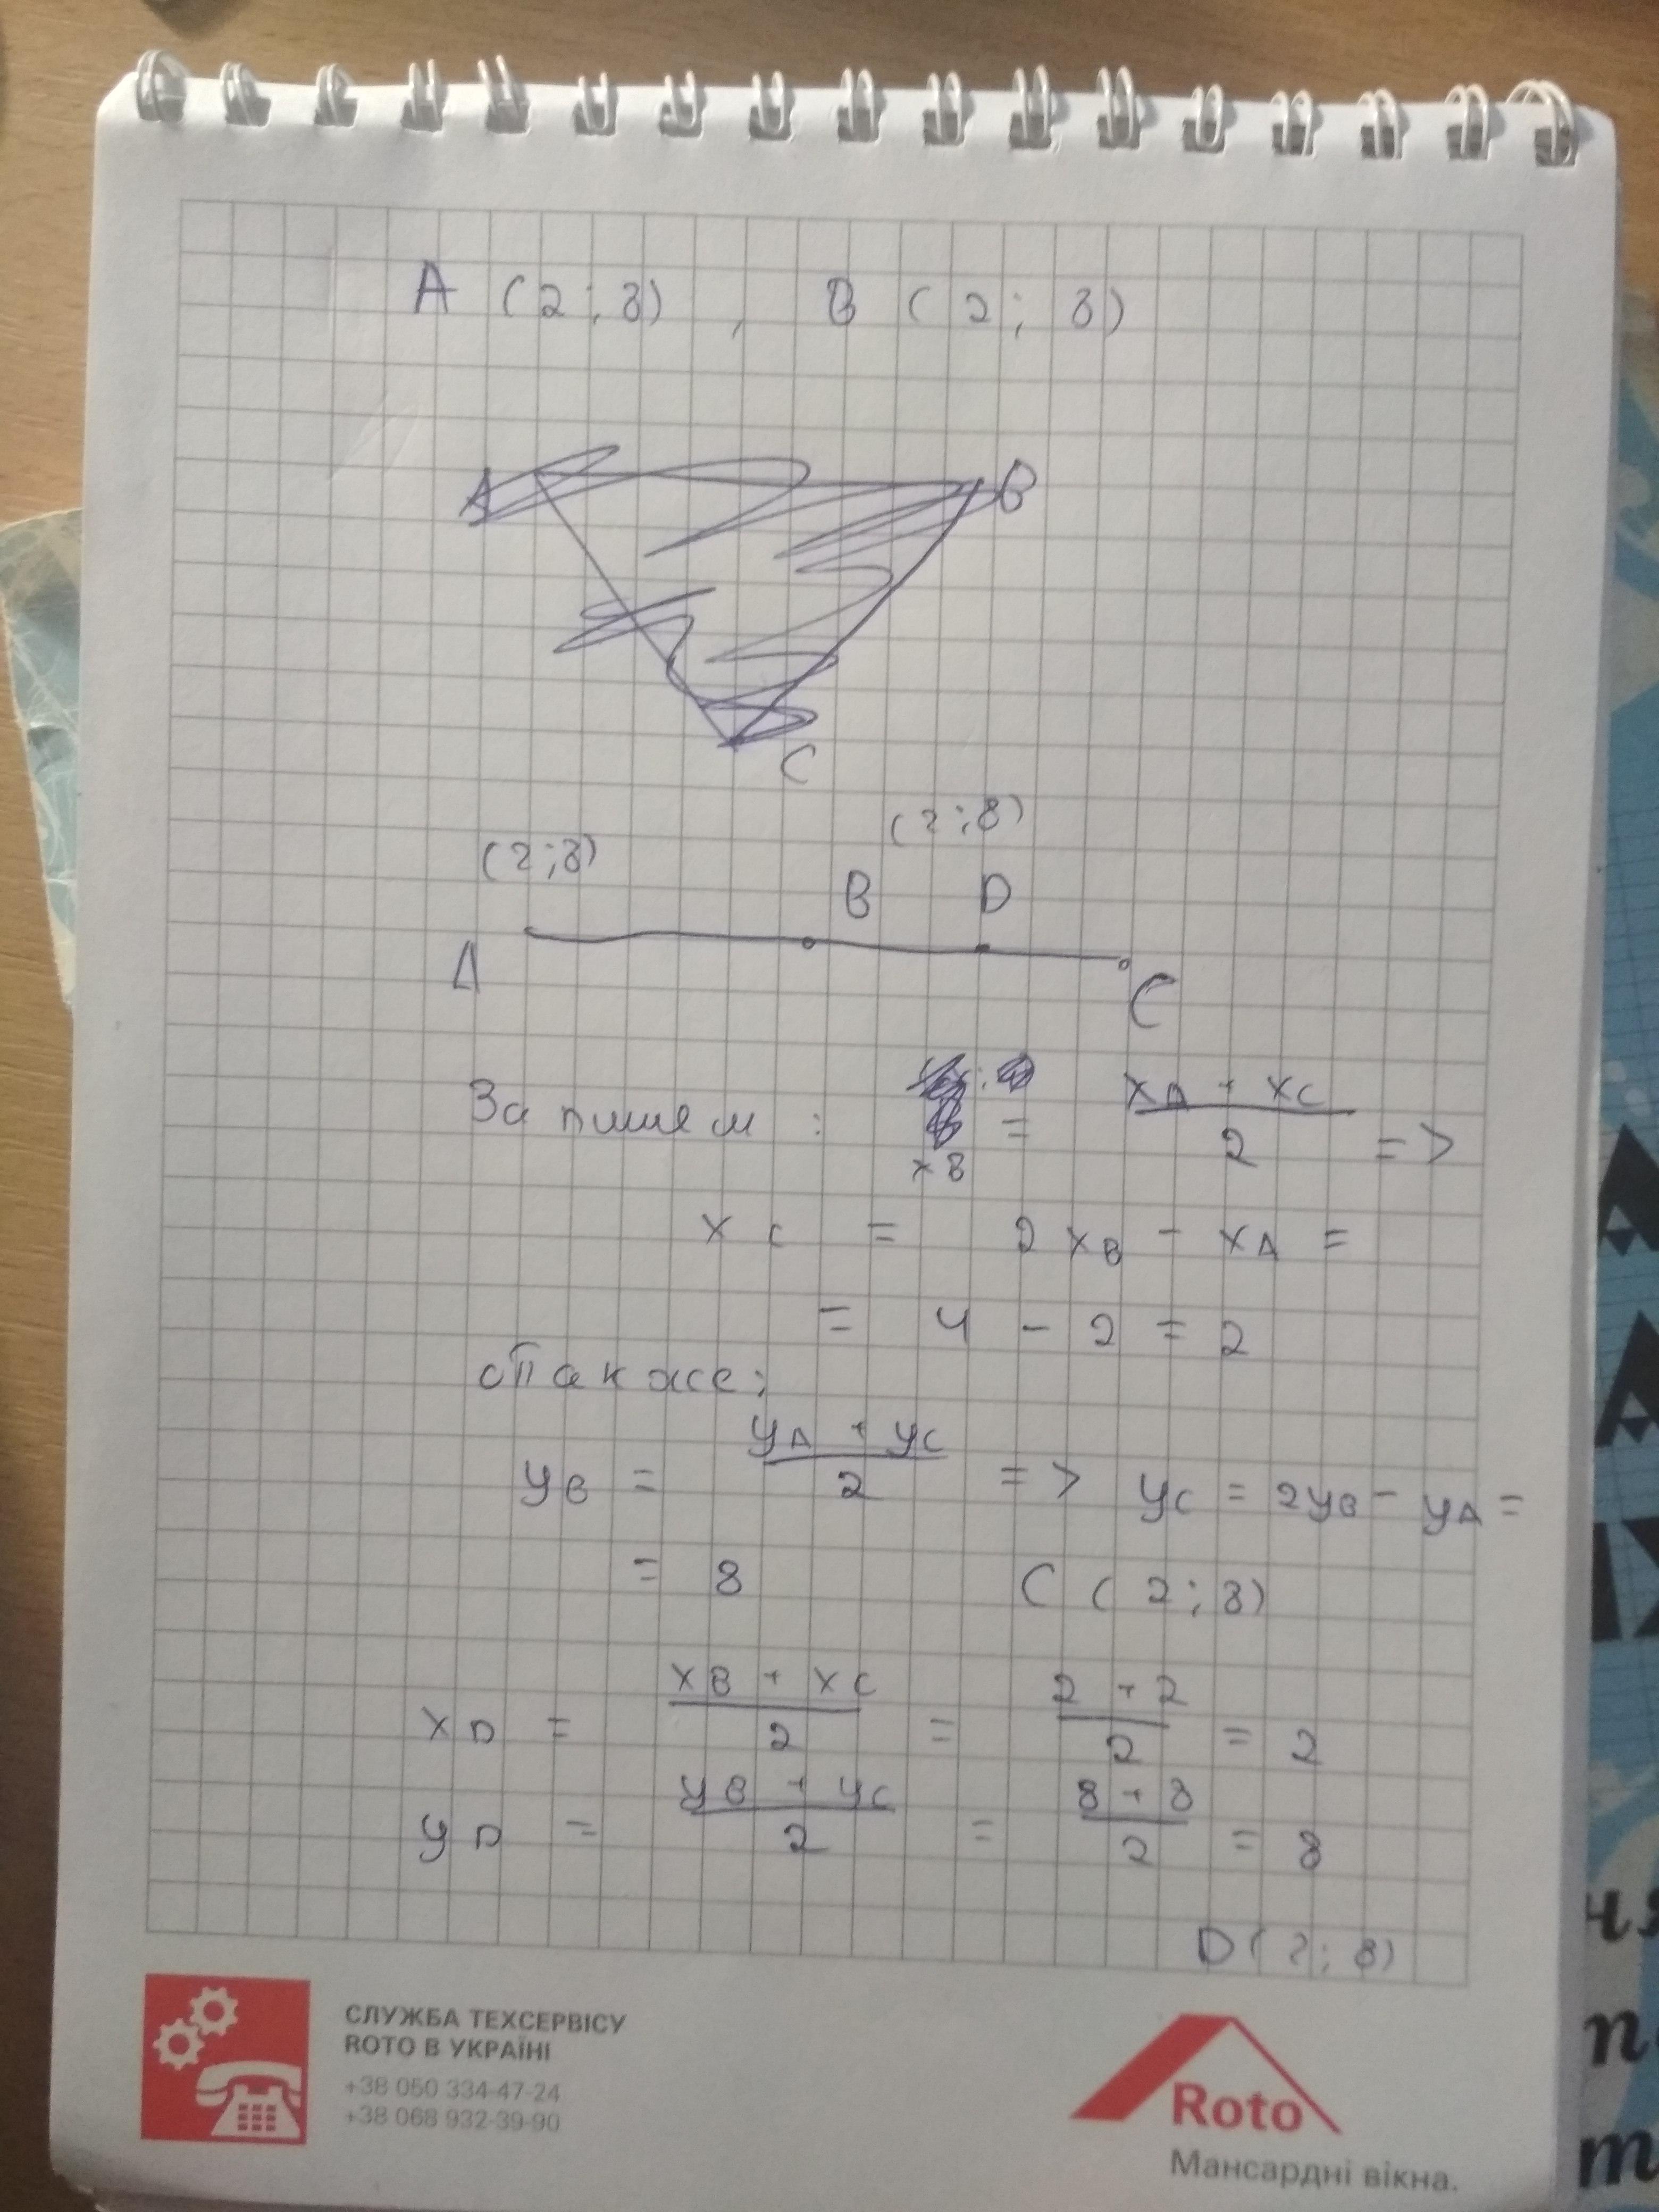 A (2; 8) , B (2; 8)
A B
C
(2;8)
(2;8)
B D
A C
Запишем : xB = (xA + xC)/2 =>
xC = 2xB - xA =
= 4 - 2 = 2
Также:
yB = (yA + yC)/2 => yC = 2yB - yA =
= 8 C (2; 8)
xD = (xB + xC)/2 = (2 + 2)/2 = 2
yD = (yB + yC)/2 = (8 + 8)/2 = 8
D (2; 8)
СЛУЖБА ТЕХСЕРВІСУ
ROTO В УКРАЇНІ
+38 050 334-47-24
+38 068 932-39-90
Roto
Мансардні вікна.